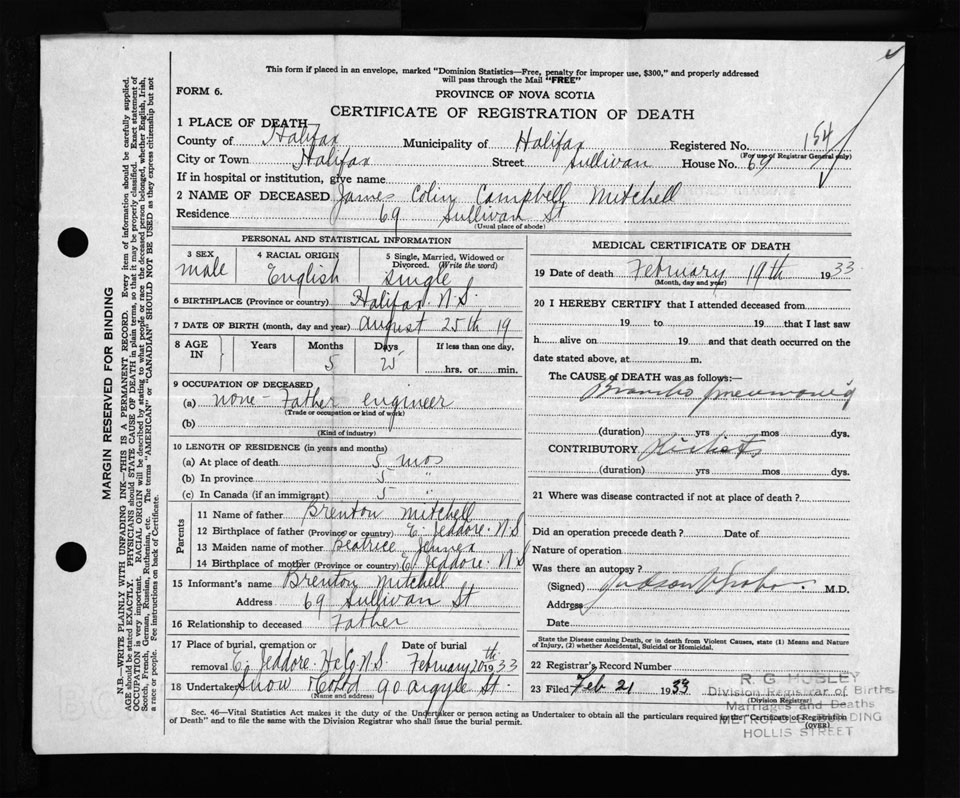 This form if placed in an envelope, marked "Dominion Statistics—Free, penalty for improper use, $300," and properly addressed
will pass through the Mail "FREE"
FORM 6.
PROVINCE OF NOVA SCOTIA
CERTIFICATE OF REGISTRATION OF DEATH
1 PLACE OF DEATH
County of Halifax Municipality of Halifax Registered No. 154
(For use of Registrar General only)
City or Town Halifax Street Sullivan House No. 69
If in hospital or institution, give name
2 NAME OF DECEASED James Colin Campbell Mitchell
Residence 69 Sullivan St
(Usual place of abode)
PERSONAL AND STATISTICAL INFORMATION
3 SEX male
4 RACIAL ORIGIN English
5 Single, Married, Widowed or
Divorced. (Write the word)
Single
6 BIRTHPLACE (Province or country) Halifax. N.S.
7 DATE OF BIRTH (month, day and year) august 25th 19
8 AGE IN Years Months 5 Days 25 If less than one day, hrs. or min.
9 OCCUPATION OF DECEASED
(a) none - Father engineer
(Trade or occupation or kind of work)
(b)
(Kind of industry)
10 LENGTH OF RESIDENCE (in years and months)
(a) At place of death 5 mos
(b) In province 5 "
(c) In Canada (if an immigrant) 5 "
Parents
11 Name of father Brenton Mitchell
12 Birthplace of father (Province or country) E. Jeddore. N.S
13 Maiden name of mother Beatrice Jennex
14 Birthplace of mother (Province or country) E Jeddore. N S
15 Informant's name Brenton Mitchell
Address 69 Sullivan St
16 Relationship to deceased Father
17 Place of burial, cremation or Date of burial
removal E. Jeddore. Hfx Co. N.S. February 20th 1933
18 Undertaker Snow & Co Ltd 90 argyle St.
(Name and address)
MEDICAL CERTIFICATE OF DEATH
19 Date of death February 19th 1933
(Month, day and year)
20 I HEREBY CERTIFY that I attended deceased from
19 to 19 that I last saw
h alive on 19 and that death occurred on the
date stated above, at m.
The CAUSE OF DEATH was as follows:—
Broncho pneumonia
(duration) yrs mos dys.
CONTRIBUTORY Rickets
(duration) yrs mos dys.
21 Where was disease contracted if not at place of death?
Did an operation precede death? Date of
Nature of operation
Was there an autopsy?
(Signed) Judson V Graham M.D.
Address
Date
State the Disease causing Death, or in death from Violent Causes, state (1) Means and Nature
of Injury, (2) whether Accidental, Suicidal or Homicidal.
22 Registrar's Record Number
23 Filed Feb 21 1933
(Division Registrar)
R G HUBLEY
Division Registrar of Births
Marriages and Deaths
METROPOLE BUILDING
HOLLIS STREET
Sec. 46—Vital Statistics Act makes it the duty of the Undertaker or person acting as Undertaker to obtain all the particulars required in the "Certificate of Registration
of Death" and to file the same with the Division Registrar who shall issue the burial permit.
(OVER)
MARGIN RESERVED FOR BINDING
N.B.—WRITE PLAINLY WITH UNFADING INK—THIS IS A PERMANENT RECORD. Every item of information should be carefully supplied.
AGE should be stated EXACTLY. PHYSICIANS should STATE CAUSE OF DEATH in plain terms, so that it may be properly classified. Exact statement of
OCCUPATION is very important. RACIAL ORIGIN will be described by stating to what people or race the deceased person belonged, whether English, Irish,
Scotch, French, German, Russian, Ruthenian, etc. The terms "AMERICAN" or "CANADIAN" SHOULD NOT BE USED as they express citizenship but not
a race or people. See instructions on back of Certificate.